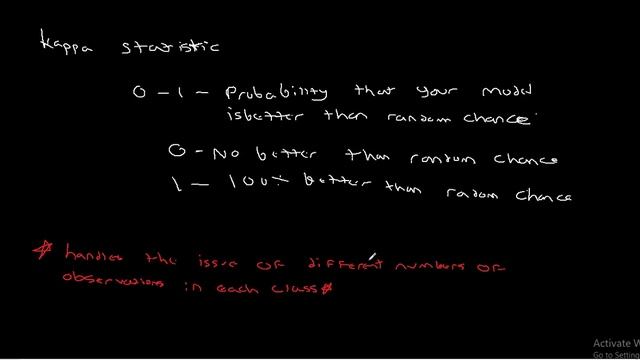 Kappa statistic
0 - 1 - Probability that your model
is better than random chance
0 - No better than random chance
1 - 100% better than radom chance
* handles the issue of different numbers of
observations in each class*
Activate W
Go to Setting